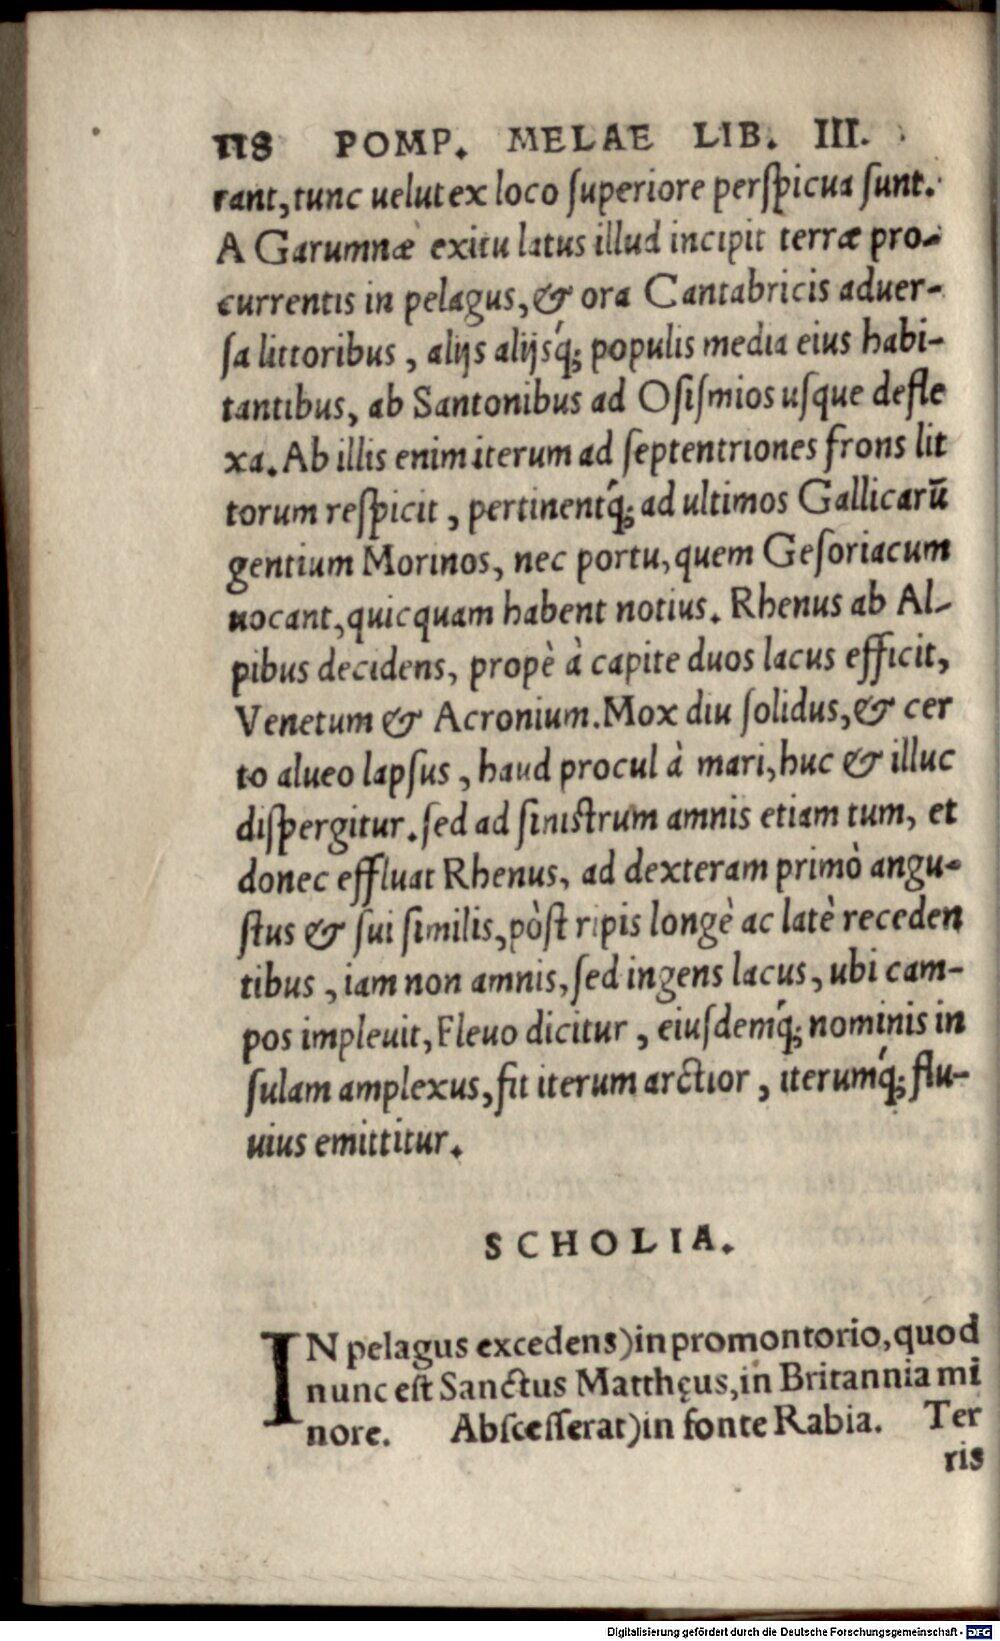 118 POMP. MELAE LIB. III.
rant, tunc uelut ex loco ſuperiore perſpicua ſunt.
A Garumnæ exitu latus illud incipit terræ pro-
currentis in pelagus, & ora Cantabricis aduer-
ſa littoribus, alijs alijsq́; populis media eius habi-
tantibus, ab Santonibus ad Oſiſmios uſque defle
xa. Ab illis enim iterum ad ſeptentriones frons lit
torum reſpicit, pertinentq́; ad ultimos Gallicarū
gentium Morinos, nec portu, quem Geſoriacum
uocant, quicquam habent notius. Rhenus ab Al-
pibus decidens, propè à capite duos lacus efficit,
Venetum & Acronium. Mox diu ſolidus, & cer
to alueo lapſus, haud procul à mari, huc & illuc
diſpergitur. ſed ad ſiniſtrum amnis etiam tum, et
donec effluat Rhenus, ad dexteram primò angu-
ſtus & ſui ſimilis, pòſt ripis longè ac latè receden
tibus, iam non amnis, ſed ingens lacus, ubi cam-
pos impleuit, Fleuo dicitur, eiuſdemq́; nominis in
ſulam amplexus, fit iterum arctior, iterumq́; flu-
uius emittitur.
SCHOLIA.
IN pelagus excedens) in promontorio, quod
nunc eſt Sanctus Matthęus, in Britannia mi
nore. Abſceſſerat) in fonte Rabia. Ter
ris
Digitalisierung gefördert durch die Deutsche Forschungsgemeinschaft - DFG